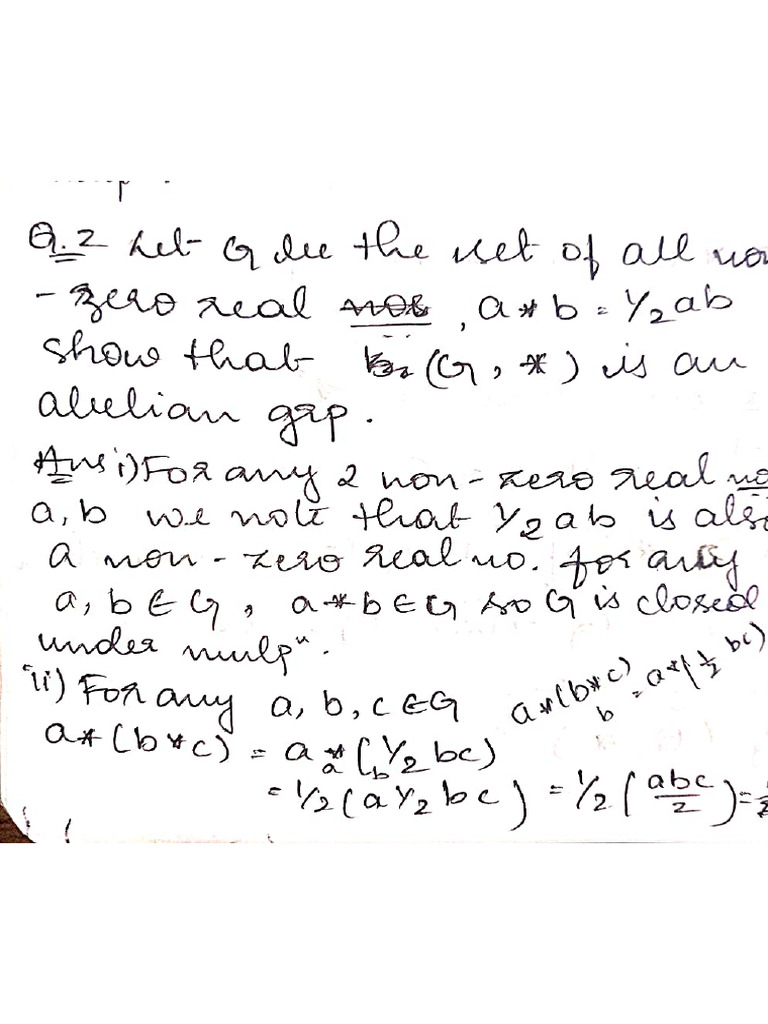 Q.2 Let G be the set of all non
-zero real nos, a * b = 1/2 ab
show that (G, *) is an
abelian grp.
Ans i) For any 2 non-zero real no
a, b we note that 1/2 ab is also
a non-zero real no. for any
a, b ∈ G, a * b ∈ G so G is closed
under mulpⁿ.
ii) For any a, b, c ∈ G
a*(b*c) = a*(1/2 bc)
b
a*(b*c) = a * (1/2 bc)
a b
= 1/2 (a 1/2 bc) = 1/2 (abc/2) =